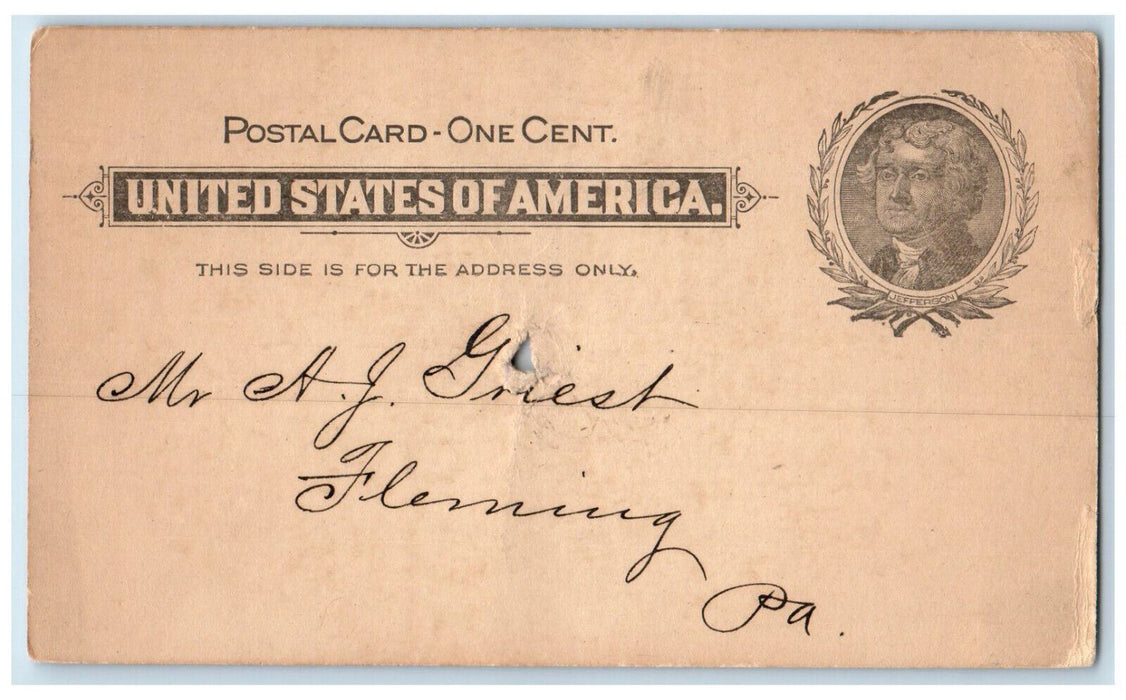 POSTAL CARD - ONE CENT.
UNITED STATES OF AMERICA.
THIS SIDE IS FOR THE ADDRESS ONLY.
JEFFERSON
Mr A. J. Griest
Fleming
Pa.